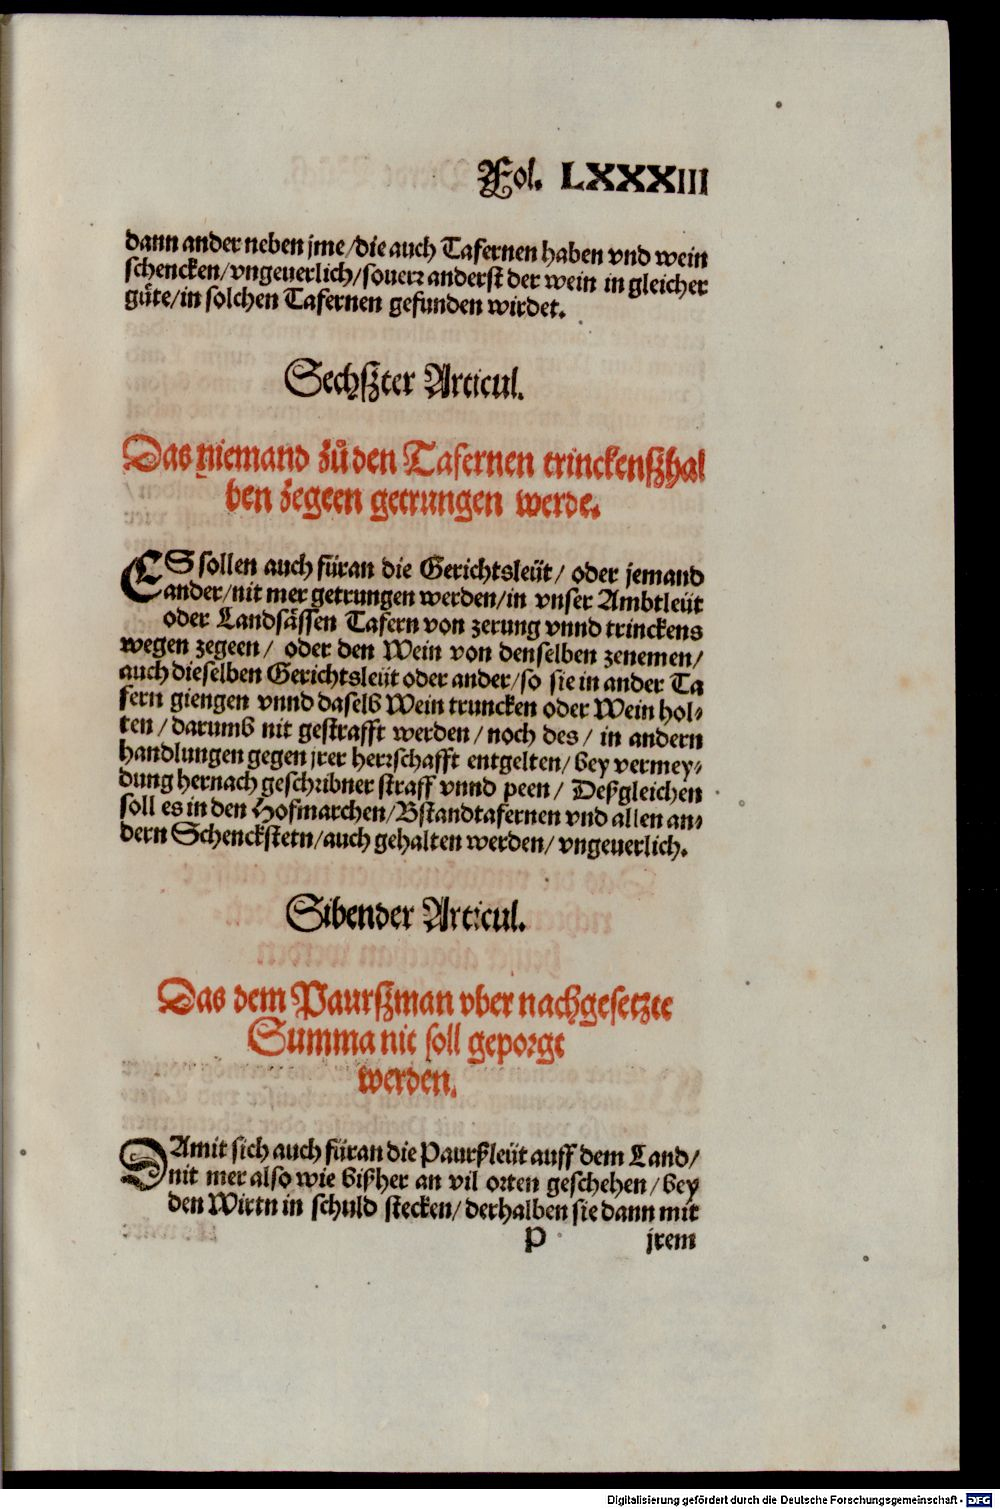 Fol. LXXXIII
dann ander neben jme/die auch Tafernen haben vnd wein
schencken/vngeuerlich/souerr anderst der wein in gleicher
güte/in solchen Tafernen gefunden wirdet.
Sechßter Articul.
Das niemand zů den Tafernen trinckenßhal
ben zegeen getrungen werde.
ES sollen auch füran die Gerichtsleüt/ oder jemand
ander/nit mer getrungen werden/in vnser Ambtleüt
oder Landsässen Tafern von zerung vnnd trinckens
wegen zegeen/ oder den Wein von denselben zenemen/
auch dieselben Gerichtsleüt oder ander/so sie in ander Ta
fern giengen vnnd daselb Wein truncken oder Wein hol-
ten/darumb nit gestrafft werden/noch des/ in andern
handlungen gegen jrer herrschafft entgelten/bey vermey-
dung hernach geschribner straff vnnd peen/ Deßgleichen
soll es in den Hofmarchen/Bstandtafernen vnd allen an-
dern Schenckstetn/auch gehalten werden/ vngeuerlich.
Sibender Articul.
Das dem Paurßman vber nachgesetzte
Summa nit soll geporgt
werden.
DAmit sich auch füran die Paurßleüt auff dem Land/
nit mer also wie bißher an vil orten geschehen/bey
den Wirtn in schuld stecken/derhalben sie dann mit
P jrem
Digitalisierung gefördert durch die Deutsche Forschungsgemeinschaft - DFG